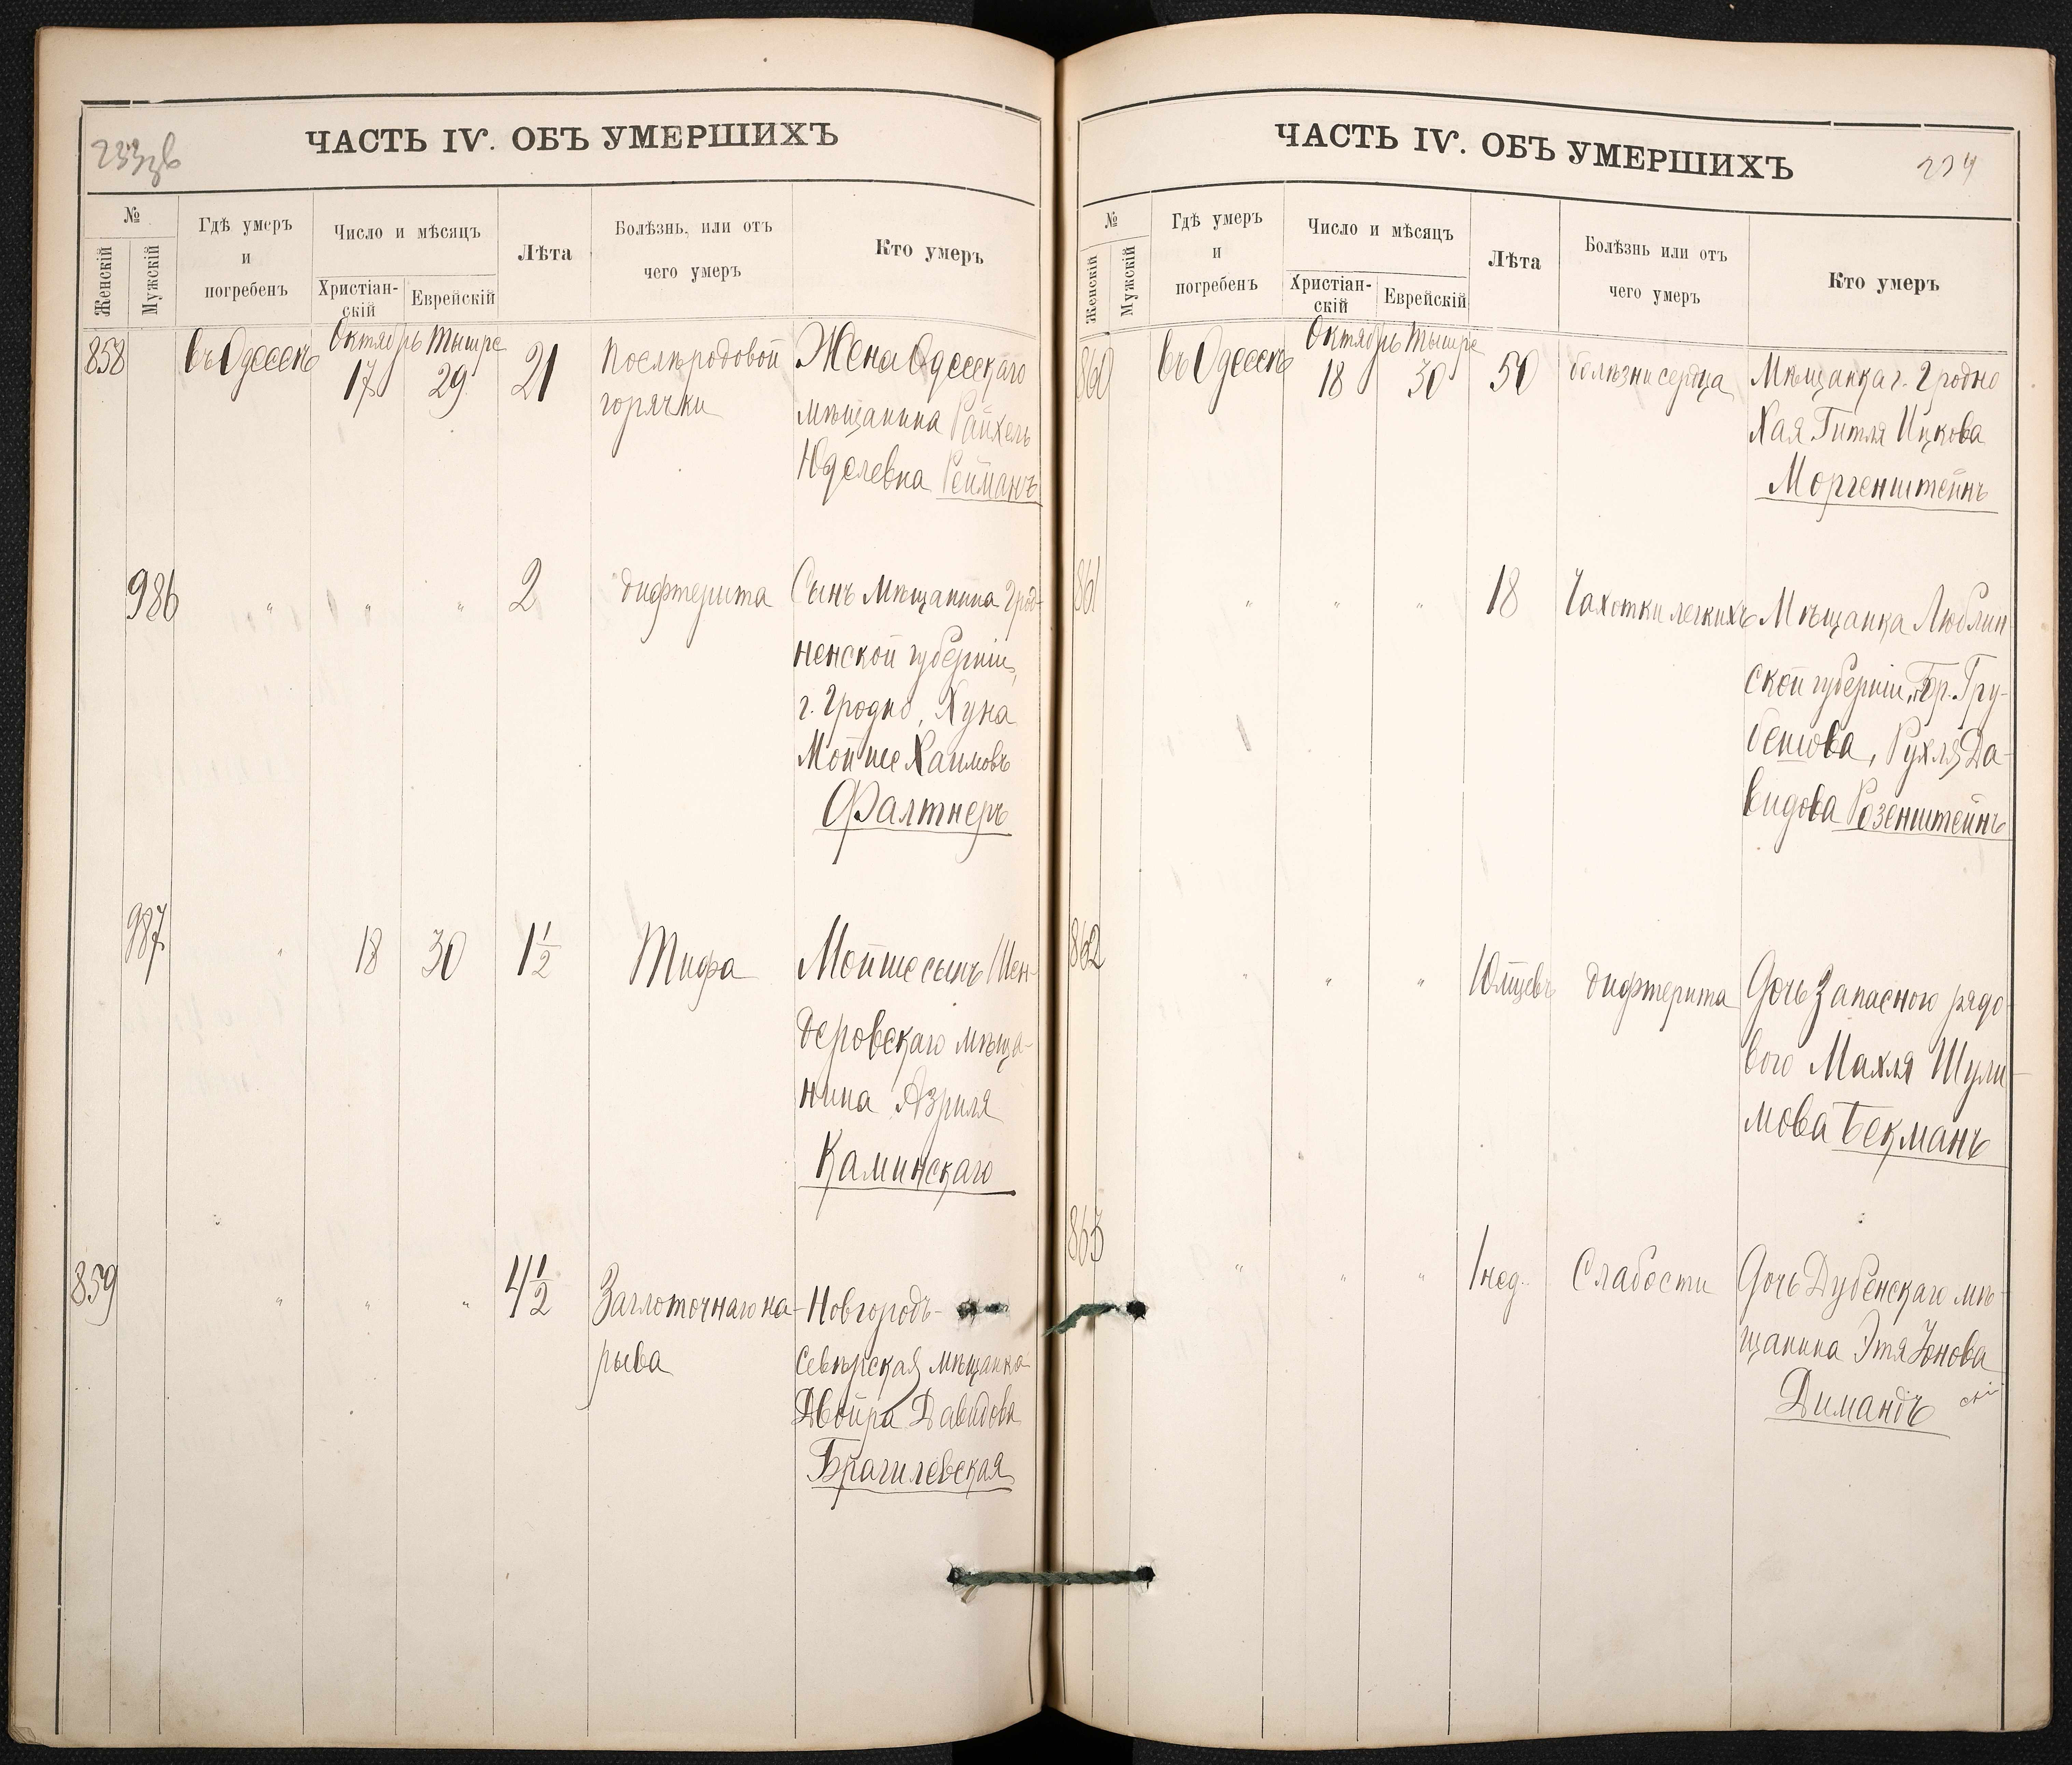 233 об
ЧАСТЬ IV. ОБЪ УМЕРШИХЪ
№
Женскій
Мужскій
Гдѣ умеръ
и
погребенъ
Число и мѣсяцъ
Христіан-
скій
Еврейскій
Лѣта
Болѣзнь, или отъ
чего умеръ
Кто умеръ
Октябрь Тышре
858 въ Одессѣ 17 29 21 Послѣродовой Жена Одесскаго
горячки мѣщанина Райхель
Юделевна Рейманъ
986 " " " 2 дифтерита Сынъ Мѣщанина Грод-
ненской губерніи,
г. Гродно, Хуна
Мойше Хаимовъ
Фалтнеръ
987 " 18 30 1½ Тифа Мойше сынъ Шен-
деровскаго мѣща-
нина Азриля
Каминскаго
859 " " " 4½ Заглоточнаго на- Новгородъ-
рыва Сѣверская мѣщанка
Двойра Давидова
Брагилевская
234
ЧАСТЬ IV. ОБЪ УМЕРШИХЪ
№
Женскій
Мужскій
Гдѣ умеръ
и
погребенъ
Число и мѣсяцъ
Христіан-
скій
Еврейскій
Лѣта
Болѣзнь или отъ
чего умеръ
Кто умеръ
Октябрь Тышре
860 въ Одессѣ 18 30 50 болѣзни сердца Мѣщанка г. Гродно
Хая Гитля Ицкова
Моргенштейнъ
861 " " " 18 Чахотки легкихъ Мѣщанка Люблин
ской губерніи, Гру-
бешова, Рухля Да-
видова Розенштейнъ
862 " " " 10 мцевъ дифтерита Дочь Запасного рядо-
вого Махля Шули-
мова Бекманъ
863 " " " 1 нед. Слабости Дочь Дубенскаго мѣ-
щанина Этя Іонова
Димандъ